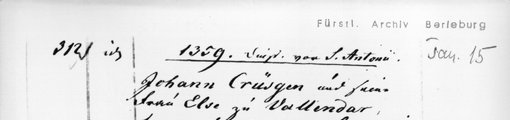 Fürstl. Archiv Berleburg
312 1359. Dinst. vor S. Antonii. Jan. 15
Johann Crüsgen und seine
Frau Else zu Vallendar,